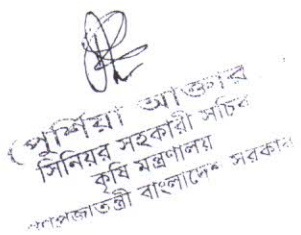 (পুর্শিয়া আক্তার
সিনিয়র সহকারী সচিব
কৃষি মন্ত্রণালয়
গণপ্রজাতন্ত্রী বাংলাদেশ সরকার